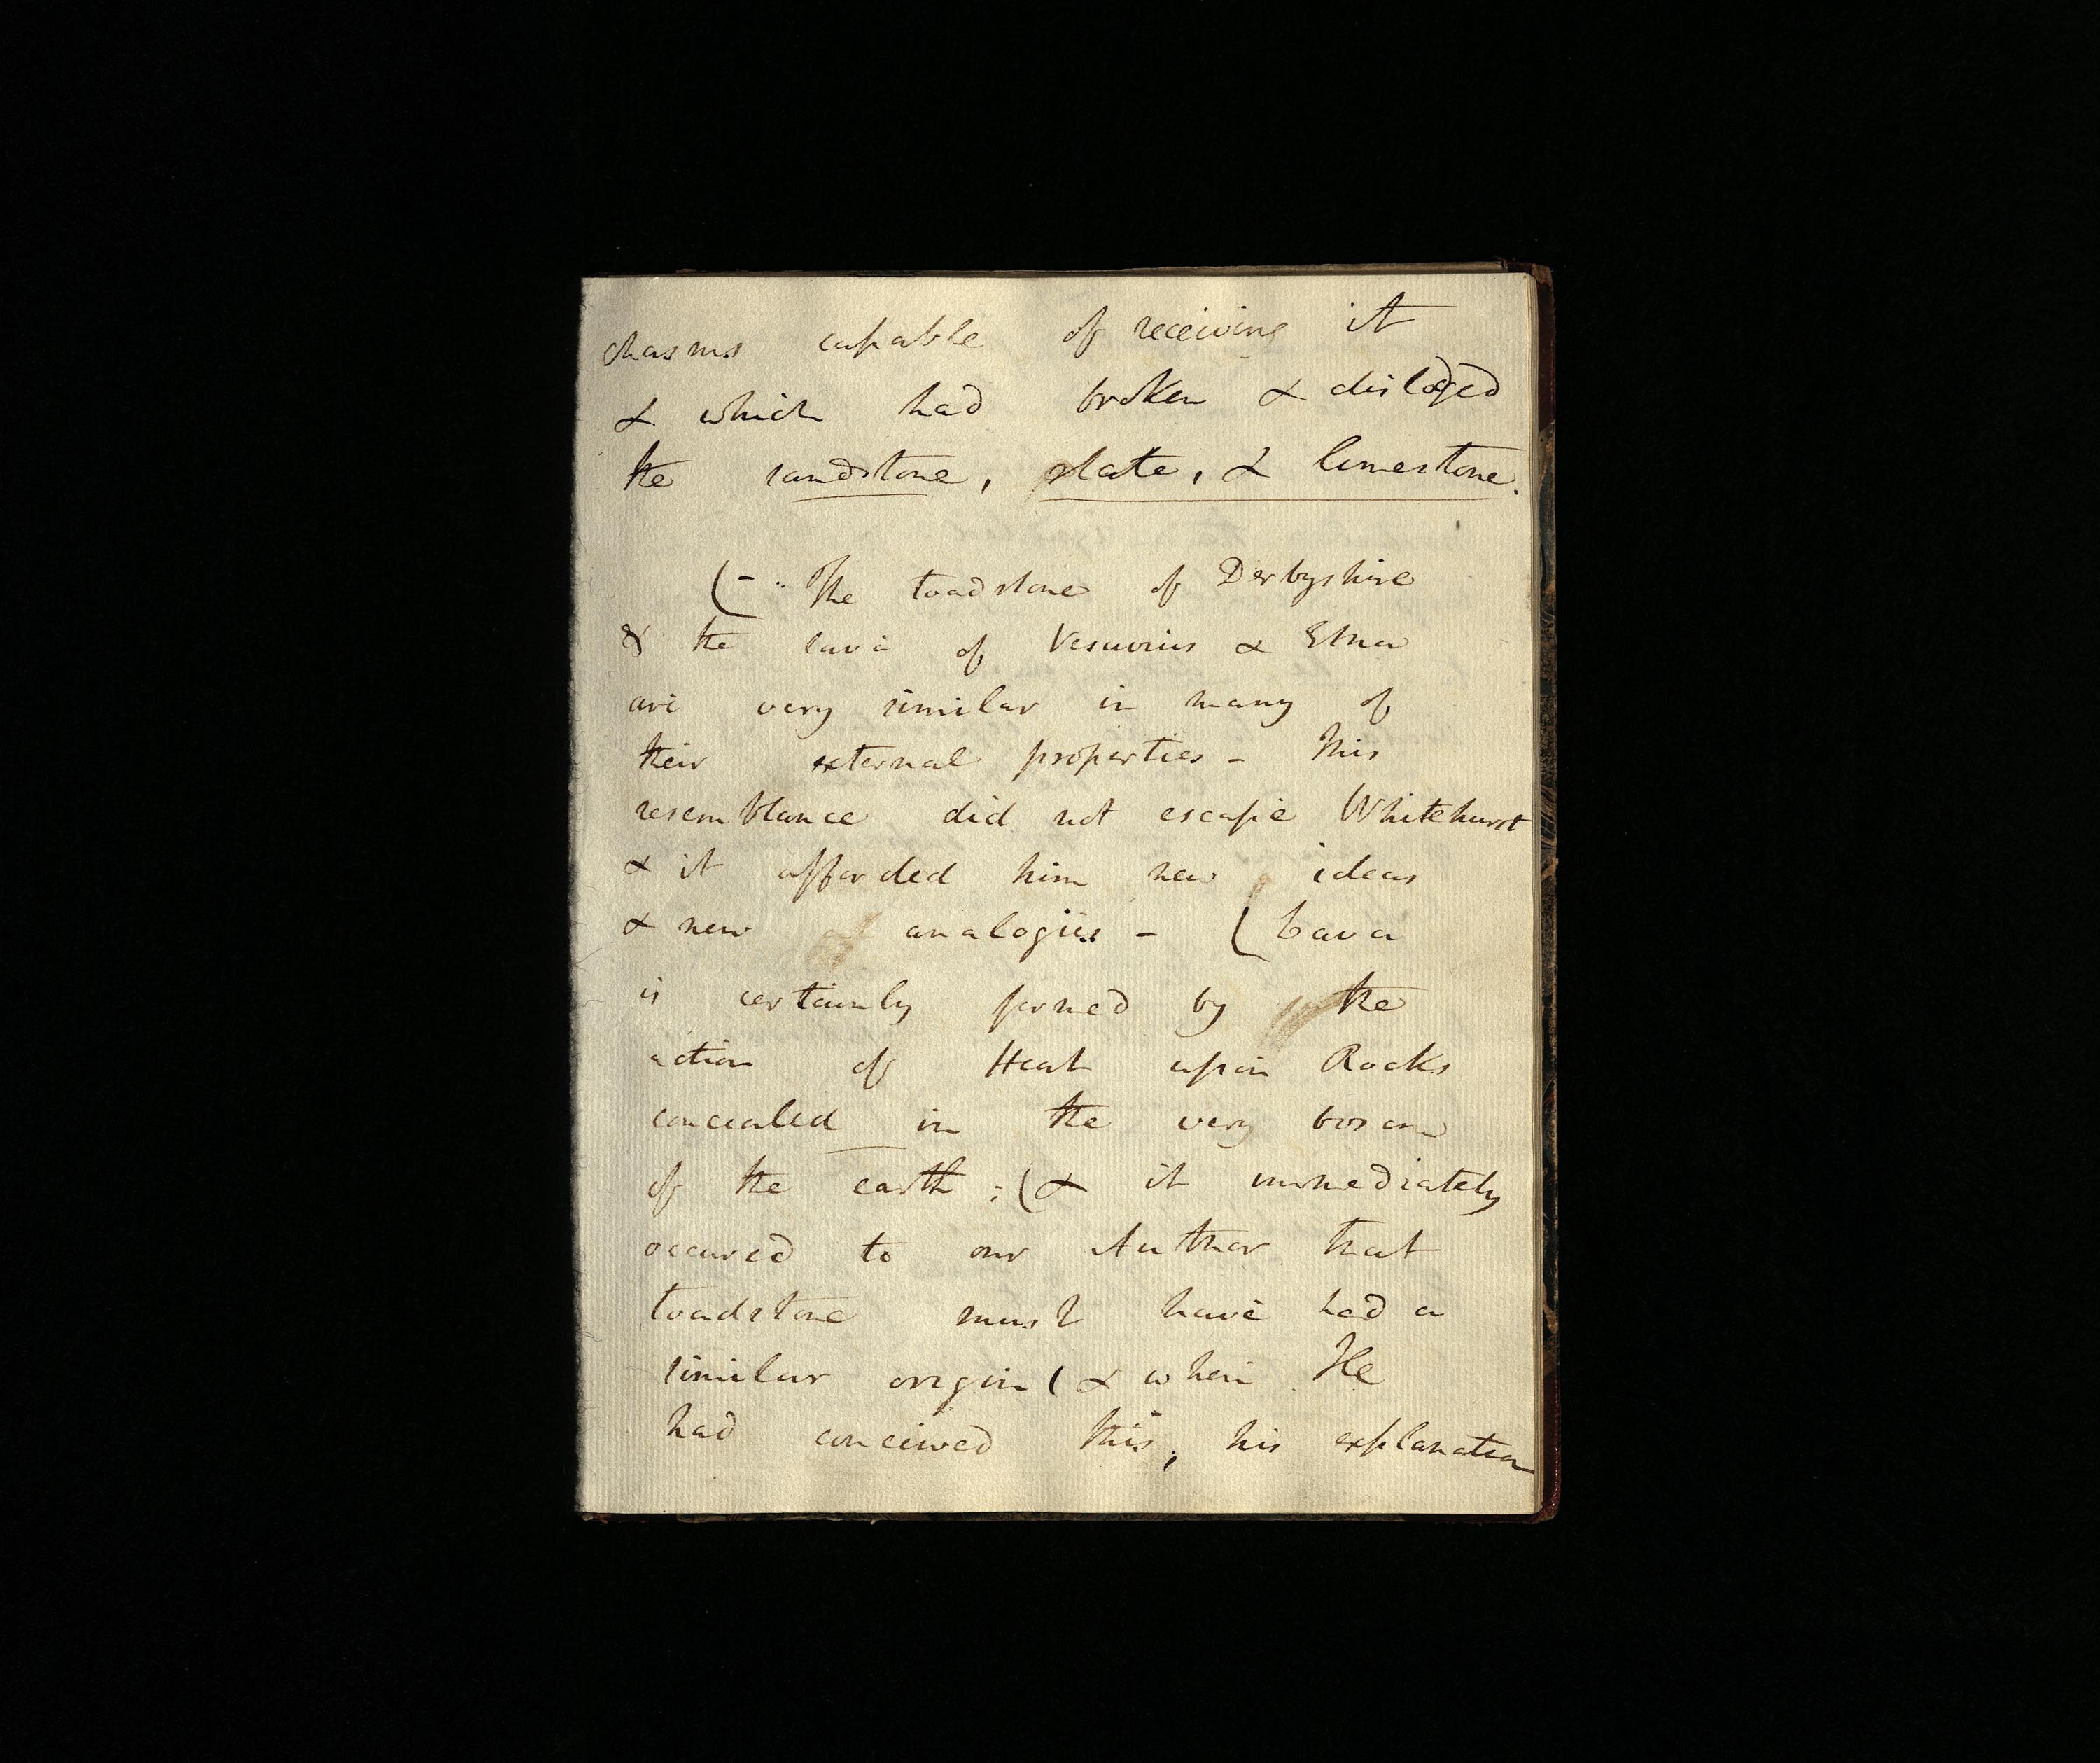 chasms capable of receiving it
& which had broken & disloged
the sandstone, slate, & limestone.
(– The toadstone of Derbyshire
& the lava of Vesuvius & Etna
are very similar in many of
their external properties – This
resemblance did not escape Whitehurst
& it afforded him new ideas
& new analogies – (Lava
is certainly formed by the
action of Heat upon Rocks
concealed in the very bosom
of the earth ; (& it immediately
occured to our Author that
toadstone must have had a
similar origin ( & when He
had conceived this, his explanation